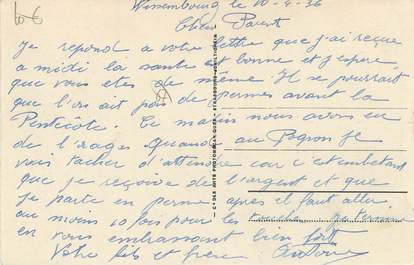 10 €
Wissembourg le 10-4-36
Chers Parent
Je repond a votre lettre que j'ai reçue
a midi la sante est bonne et j'espere
que vous etes de même Il se pourrait
que l'on ait pas de permes avant la
Pentecôte. Ce matin nous avons eu
de l'orage. Quand au Pognon je
vais tacher d'attendre car c'est embetant
que je reçoive de l'argent et que
je parte en perme après il faut aller
au moins 10 fois pour les je termine
en vous embrassant bien fort
Votre fils et frere Antoine